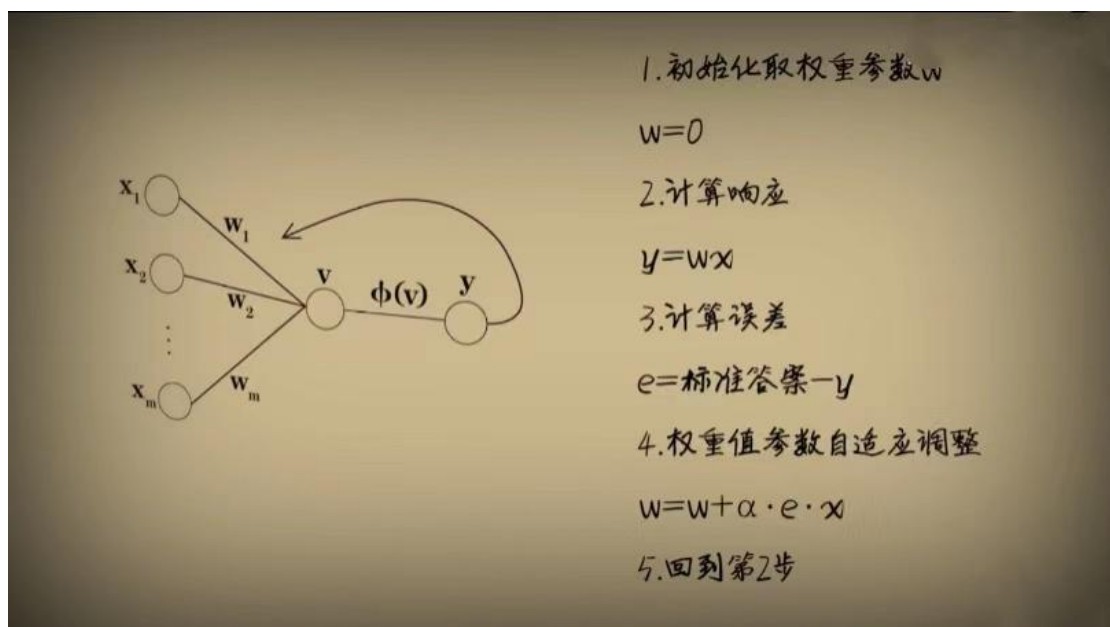 x₁
w₁
x₂
w₂
⋮
xₘ
wₘ
v
ϕ(v)
y
1.初始化取权重参数w
w=0
2.计算响应
y=wx
3.计算误差
e=标准答案-y
4.权重值参数自适应调整
w=w+α·e·x
5.回到第2步